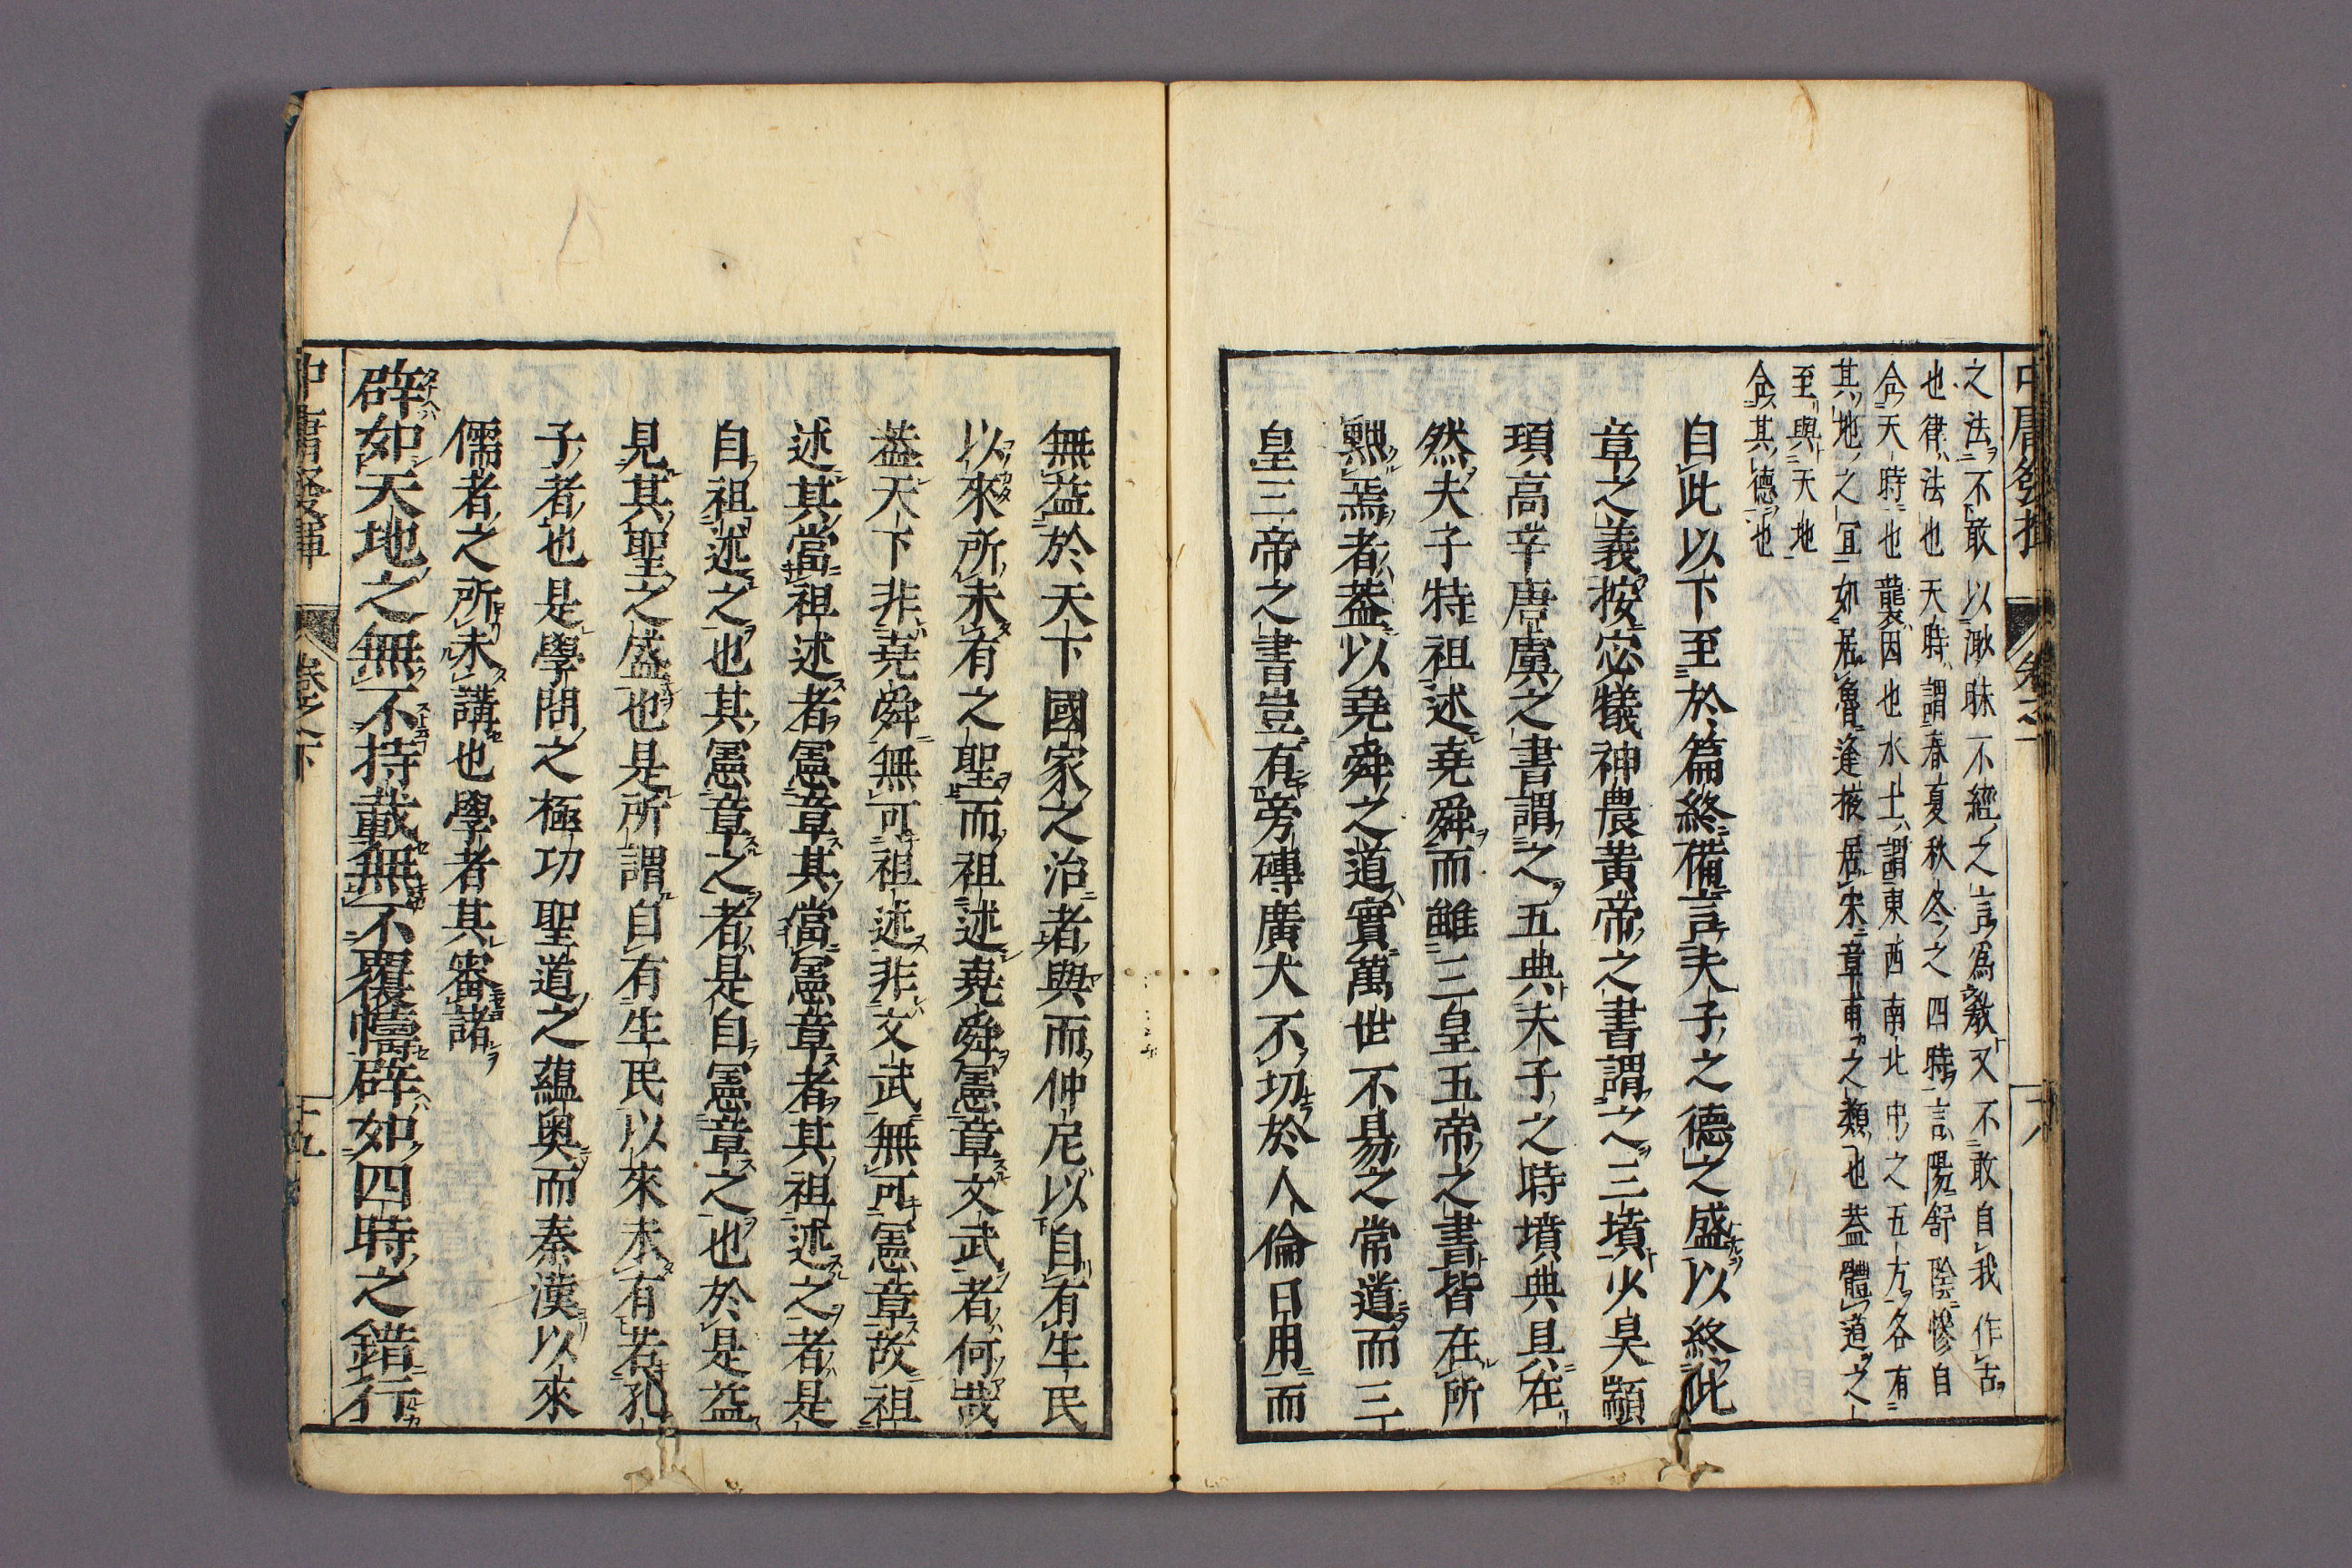 之法不敢以渺昧不經之言爲敎又不敢自我作古
也律法也天時謂春夏秋冬之四時言陽舒陰慘自
合天時也襲因也水土謂東西南北中之五方各有
其地之宜如居魯逢掖居宋章甫之類也蓋體道之
至與天地
合其德也
自此以下至於篇終備言夫子之德之盛以終此
章之義按宓犧神農黃帝之書謂之三墳少昊顓
頊高辛唐虞之書謂之五典夫子之時墳典具在
然夫子特祖述堯舜而雖三皇五帝之書皆在所
黜焉者蓋以堯舜之道實萬世不易之常道而三
皇三帝之書豈有旁礴廣大不切於人倫日用而
無益於天下國家之治者與而仲尼以自有生民
以來所未有之聖而祖述堯舜憲章文武者何哉
蓋天下非堯舜無可祖述非文武無可憲章故祖
述其當祖述者憲章其當憲章者其祖述之者是
自祖述之也其憲章之者是自憲章之也於是益
見其聖之盛也是所謂自有生民以來未有若孔
子者也是學問之極功聖道之蘊奧而秦漢以來
儒者之所未講也學者其審諸
辟如天地之無不持載無不覆幬辟如四時之錯行
中庸發揮 卷之下 十五